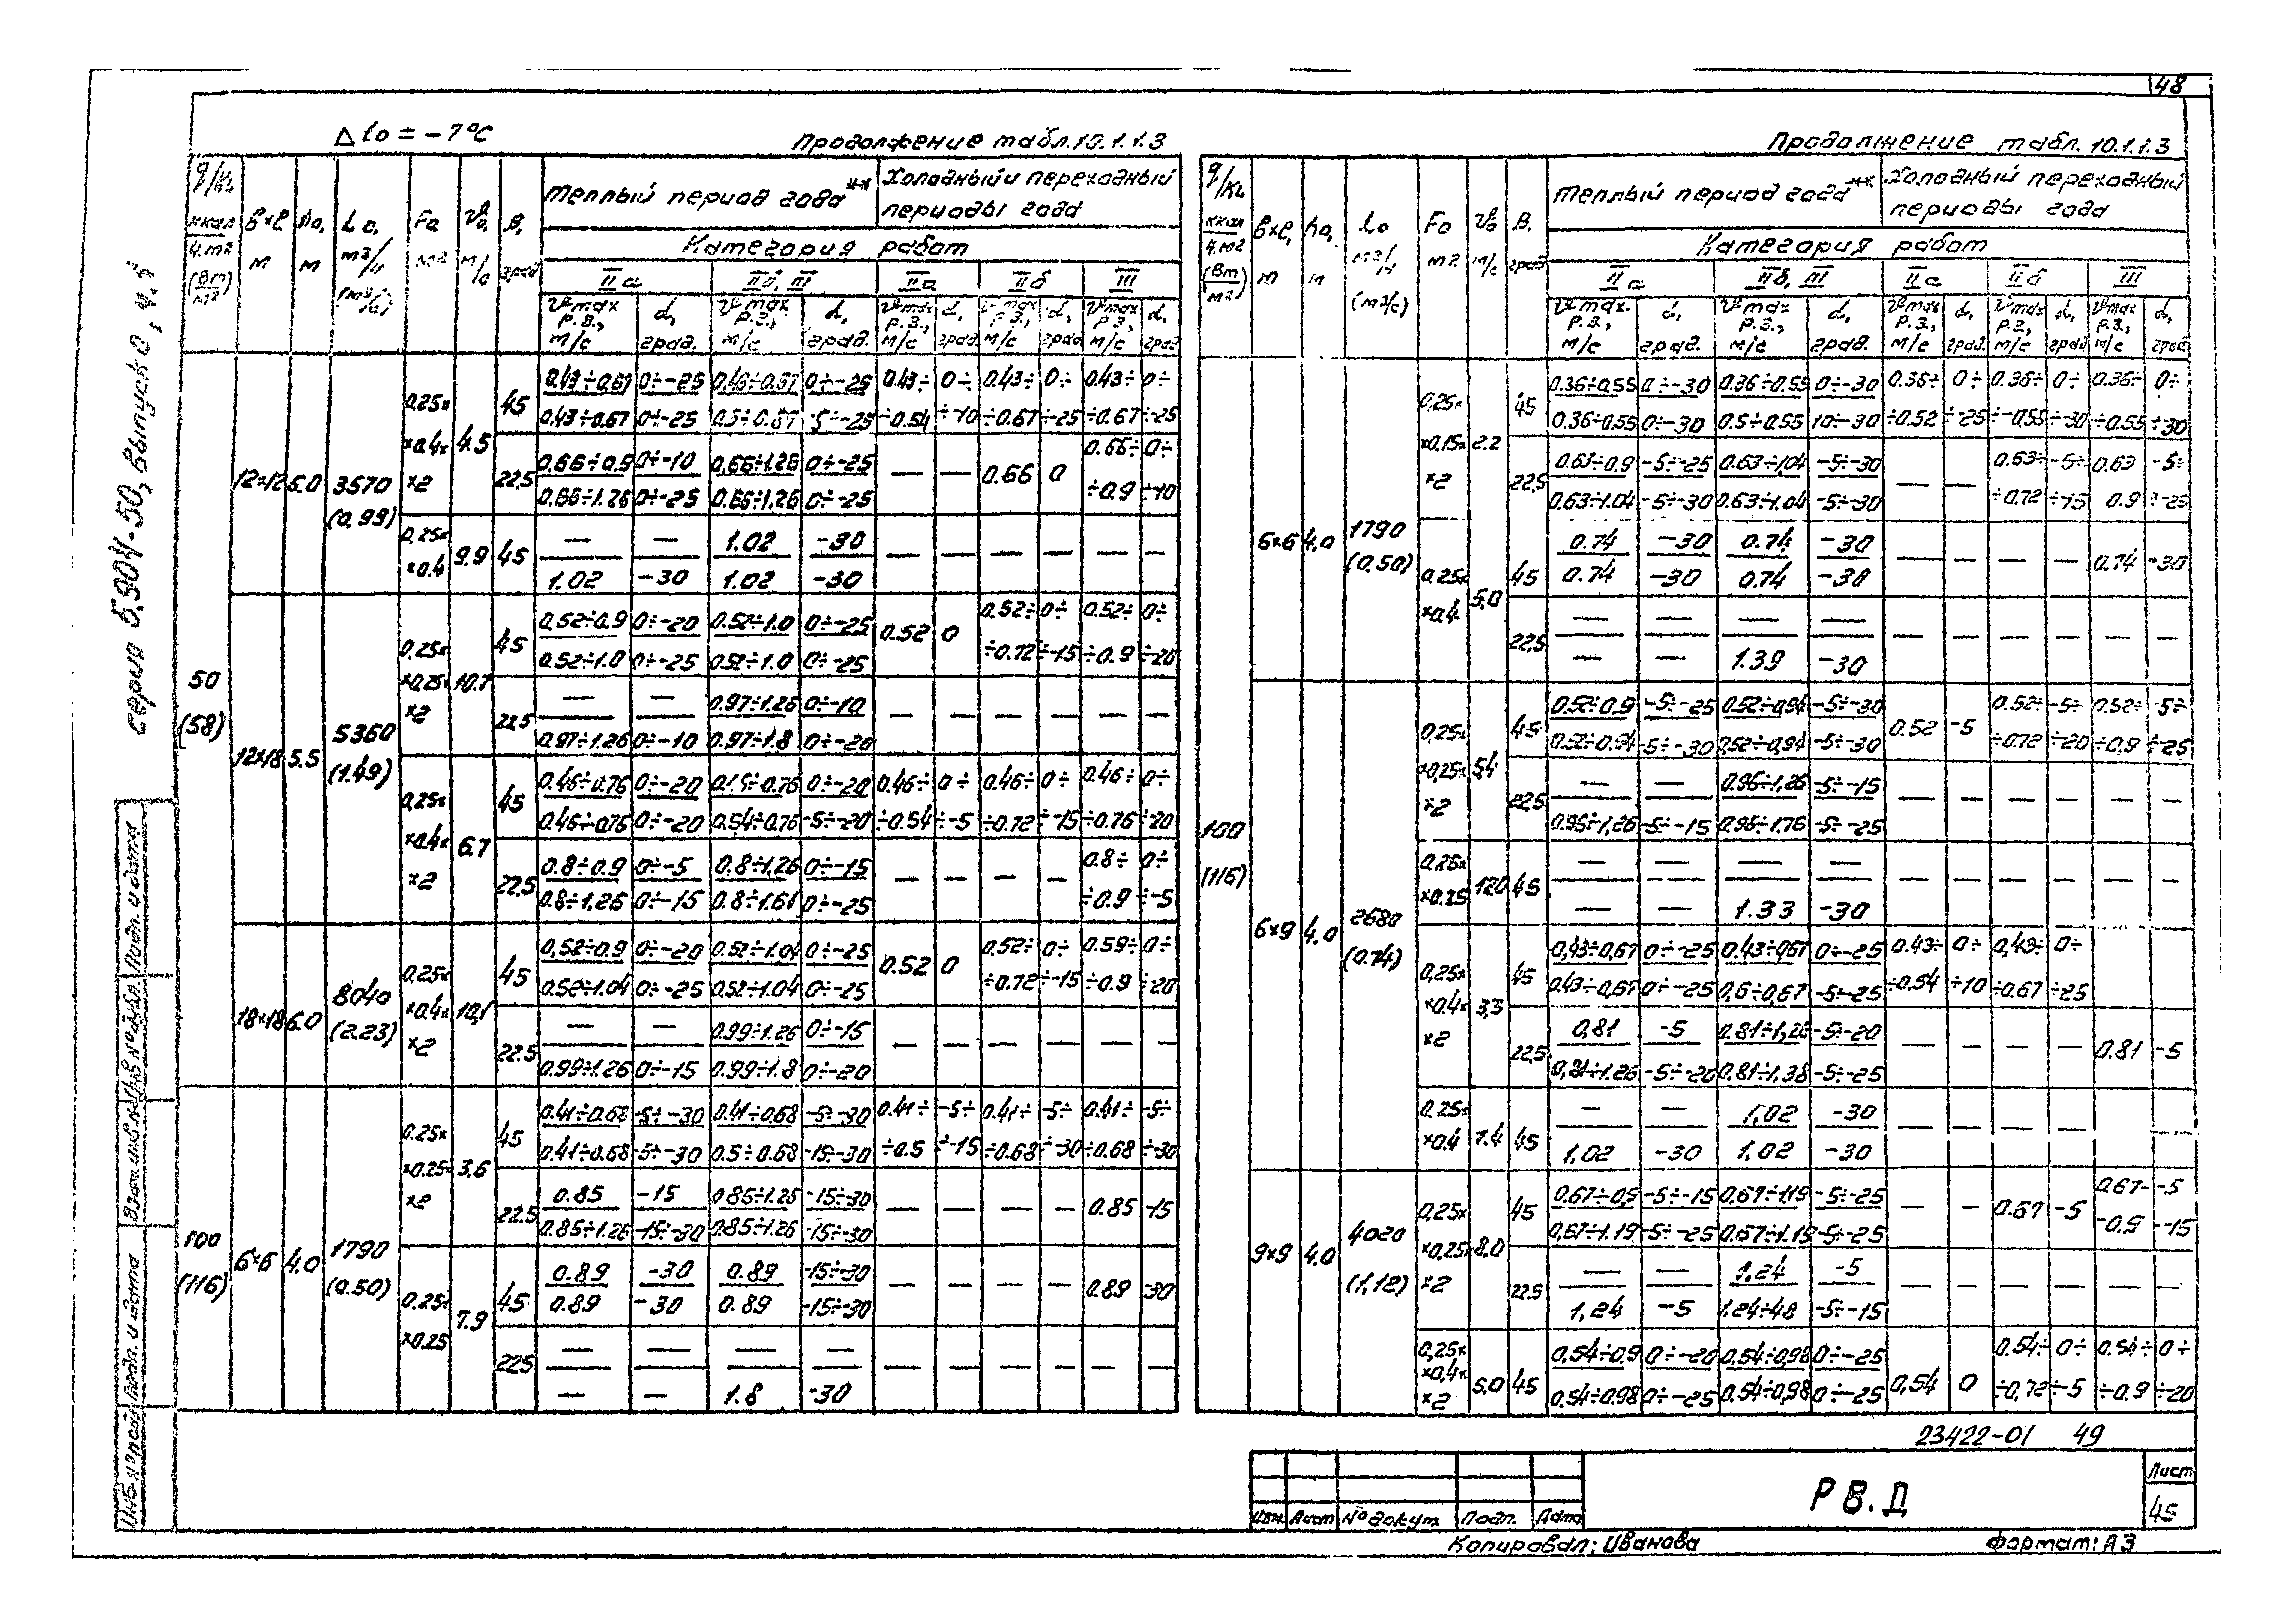 48
серия 5.904-50, выпуск 0, ч.1
Δ to = -7°С
Продолжение табл. 10.1.1.3
q/KL ккал/ч.м² (Вт/м²) | в×ℓ, м | ho, м | Lo, м³/ч (м³/с) | Fo м² | v₀, м/с | β, град | Теплый период года** | Холодный и переходный периоды года
Категория работ
IIа | IIб, III | IIа | IIб | III
vmax р.з., м/с | α, град. | vmax р.з., м/с | α, град. | vmax р.з., м/с | α, град | vmax р.з., м/с | α, град | vmax р.з., м/с | α, град
50 (58)
12×12 6.0 3570 (0.99)
0.25× ×0.4× ×2 | 4.5 | 45 | 0.43÷0.67 0÷-25 0.46÷0.67 0÷-25 0.43÷ 0÷ 0.43÷ 0÷ 0.43÷ 0÷
0.43÷0.67 0÷-25 0.5÷0.67 -5÷-25 ÷0.54 ÷-10 ÷0.67 ÷-25 ÷0.67 ÷-25
22.5 | 0.66÷0.9 0÷-10 0.66÷1.26 0÷-25 — — 0.66 0 0.66÷ 0÷
0.66÷1.26 0÷-25 0.66÷1.26 0÷-25 ÷0.9 ÷-10
0.25× ×0.4 | 9.9 | 45 | — — 1.02 -30 — — — — — —
1.02 -30 1.02 -30
12×18 5.5 5360 (1.49)
0.25× ×0.25× ×2 | 10.7 | 45 | 0.52÷0.9 0÷-20 0.52÷1.0 0÷-25 0.52 0 0.52÷ 0÷ 0.52÷ 0÷
0.52÷1.0 0÷-25 0.52÷1.0 0÷-25 ÷0.72 ÷-15 ÷0.9 ÷-20
22.5 | — — 0.97÷1.26 0÷-10 — — — — — —
0.97÷1.26 0÷-10 0.97÷1.8 0÷-20
0.25× ×0.4× ×2 | 6.7 | 45 | 0.46÷0.76 0÷-20 0.46÷0.76 0÷-20 0.46÷ 0÷ 0.46÷ 0÷ 0.46÷ 0÷
0.46÷0.76 0÷-20 0.54÷0.76 -5÷-20 ÷0.54 ÷-5 ÷0.72 ÷-15 ÷0.76 ÷-20
22.5 | 0.8÷0.9 0÷-5 0.8÷1.26 0÷-15 — — — — 0.8÷ 0÷
0.8÷1.26 0÷-15 0.8÷1.61 0÷-25 ÷0.9 ÷-5
18×18 6.0 8040 (2.23)
0.25× ×0.4× ×2 | 10,1 | 45 | 0,52÷0.9 0÷-20 0.52÷1.04 0÷-25 0.52 0 0.52÷ 0÷ 0.59÷ 0÷
0.52÷1.04 0÷-25 0.52÷1.04 0÷-25 ÷0.72 ÷-15 ÷0.9 ÷-20
22.5 | — — 0.99÷1.26 0÷-15 — — — — — —
0.99÷1.26 0÷-15 0.99÷1.8 0÷-20
100 (116)
6×6 4.0 1790 (0.50)
0.25× ×0.25× ×2 | 3.6 | 45 | 0.41÷0.68 -5÷-30 0.41÷0.68 -5÷-30 0.41÷ -5÷ 0.41÷ -5÷ 0.41÷ -5÷
0.41÷0.68 -5÷-30 0.5÷0.68 -15÷-30 ÷0.5 ÷-15 ÷0.68 ÷-30 ÷0.68 ÷-30
22.5 | 0.85 -15 0.85÷1.26 -15÷-30 — — — — 0.85 -15
0.85÷1.26 -15÷-30 0.85÷1.26 -15÷-30
0.25× ×0.25 | 7.9 | 45 | 0.89 -30 0.89 -15÷-30 — — — — 0.89 -30
0.89 -30 0.89 -15÷-30
22.5 | — — — — — — — — — —
— — 1.8 -30
Продолжение табл. 10.1.1.3
q/KL ккал/ч.м² (Вт/м²) | в×ℓ, м | ho, м | Lo м³/ч (м³/с) | Fo м² | v₀ м/с | β, град | Теплый период года** | Холодный и переходный периоды года
Категория работ
IIа | IIб, III | IIа | IIб | III
vmax р.з., м/с | α, град. | vmax р.з., м/с | α, град. | vmax р.з., м/с | α, град. | vmax р.з., м/с | α, град | vmax р.з., м/с | α, град
100 (116)
6×6 4.0 1790 (0.50)
0,25× ×0.15× ×2 | 2.2 | 45 | 0.36÷0.55 0÷-30 0.36÷0.55 0÷-30 0.36÷ 0÷ 0.36÷ 0÷ 0.36÷ 0÷
0.36÷0.55 0÷-30 0.5÷0.55 10÷-30 ÷0.52 ÷-25 ÷0.55 ÷-30 ÷0.55 ÷30
22,5 | 0.61÷0.9 -5÷-25 0.63÷1,04 -5÷-30 — — 0.63÷ -5÷ 0.63 -5÷
0.63÷1.04 -5÷-30 0.63÷1.04 -5÷-30 ÷0.72 ÷-15 0.9 ÷-25
0.25× ×0.4 | 5,0 | 45 | 0.74 -30 0.74 -30 — — — — 0.74 -30
0.74 -30 0.74 -30
22,5 | — — — — — — — — — —
— — 1.39 -30
6×9 4.0 2680 (0.74)
0,25× ×0,25× ×2 | 5,4 | 45 | 0.52÷0.9 -5÷-25 0.52÷0.94 -5÷-30 0.52 -5 0.52÷ -5÷ 0.52÷ -5÷
0.52÷0.94 -5÷-30 0,52÷0,94 -5÷-30 ÷0.72 ÷-20 ÷0.9 ÷-25
22,5 | — — 0.96÷1,26 -5÷-15 — — — — — —
0.96÷1,26 -5÷-15 0.96÷1.76 -5÷-25
0.25× ×0.25 | 12.0 | 45 | — — — — — — — — — —
— — 1.33 -30
0,25× ×0.4× ×2 | 3.3 | 45 | 0,43÷0,67 0÷-25 0.43÷0,67 0÷-25 0.43÷ 0÷ 0,43÷ 0÷
0.43÷0,67 0÷-25 0,6÷0,67 -5÷-25 ÷0.54 ÷-10 ÷0.67 ÷-25
22,5 | 0,81 -5 0.81÷1,26 -5÷-20 — — — — 0.81 -5
0,81÷1.26 -5÷-20 0.81÷1,38 -5÷-25
0,25× ×0,4 | 7.4 | 45 | — — 1,02 -30
1,02 -30 1,02 -30
9×9 4.0 4020 (1,12)
0,25× ×0,25× ×2 | 8.0 | 45 | 0.67÷0,9 -5÷-15 0.67÷1.19 -5÷-25 — — 0.67 -5 0.67- -5
0,67÷1.19 -5÷-25 0.67÷1.19 -5÷-25 -0.9 -15
22.5 | — — 1,24 -5 — — — — — —
1,24 -5 1.24÷48 -5÷-15
0,25× ×0,4× ×2 | 5.0 | 45 | 0,54÷0.9 0÷-20 0,54÷0,98 0÷-25 0,54 0 0.54÷ 0÷ 0.54÷ 0÷
0.54÷0.98 0÷-25 0.54÷0,98 0÷-25 ÷0,72 ÷-5 ÷0.9 ÷-20
23422-01 49
Изм. Лист № докум. Подп. Дата
РВ.Д
Лист
45
Копировал: Иванова
Формат: А3
Инв. № подл. Подп. и дата
Взам. инв. № Инв. № дубл. Подп. и дата